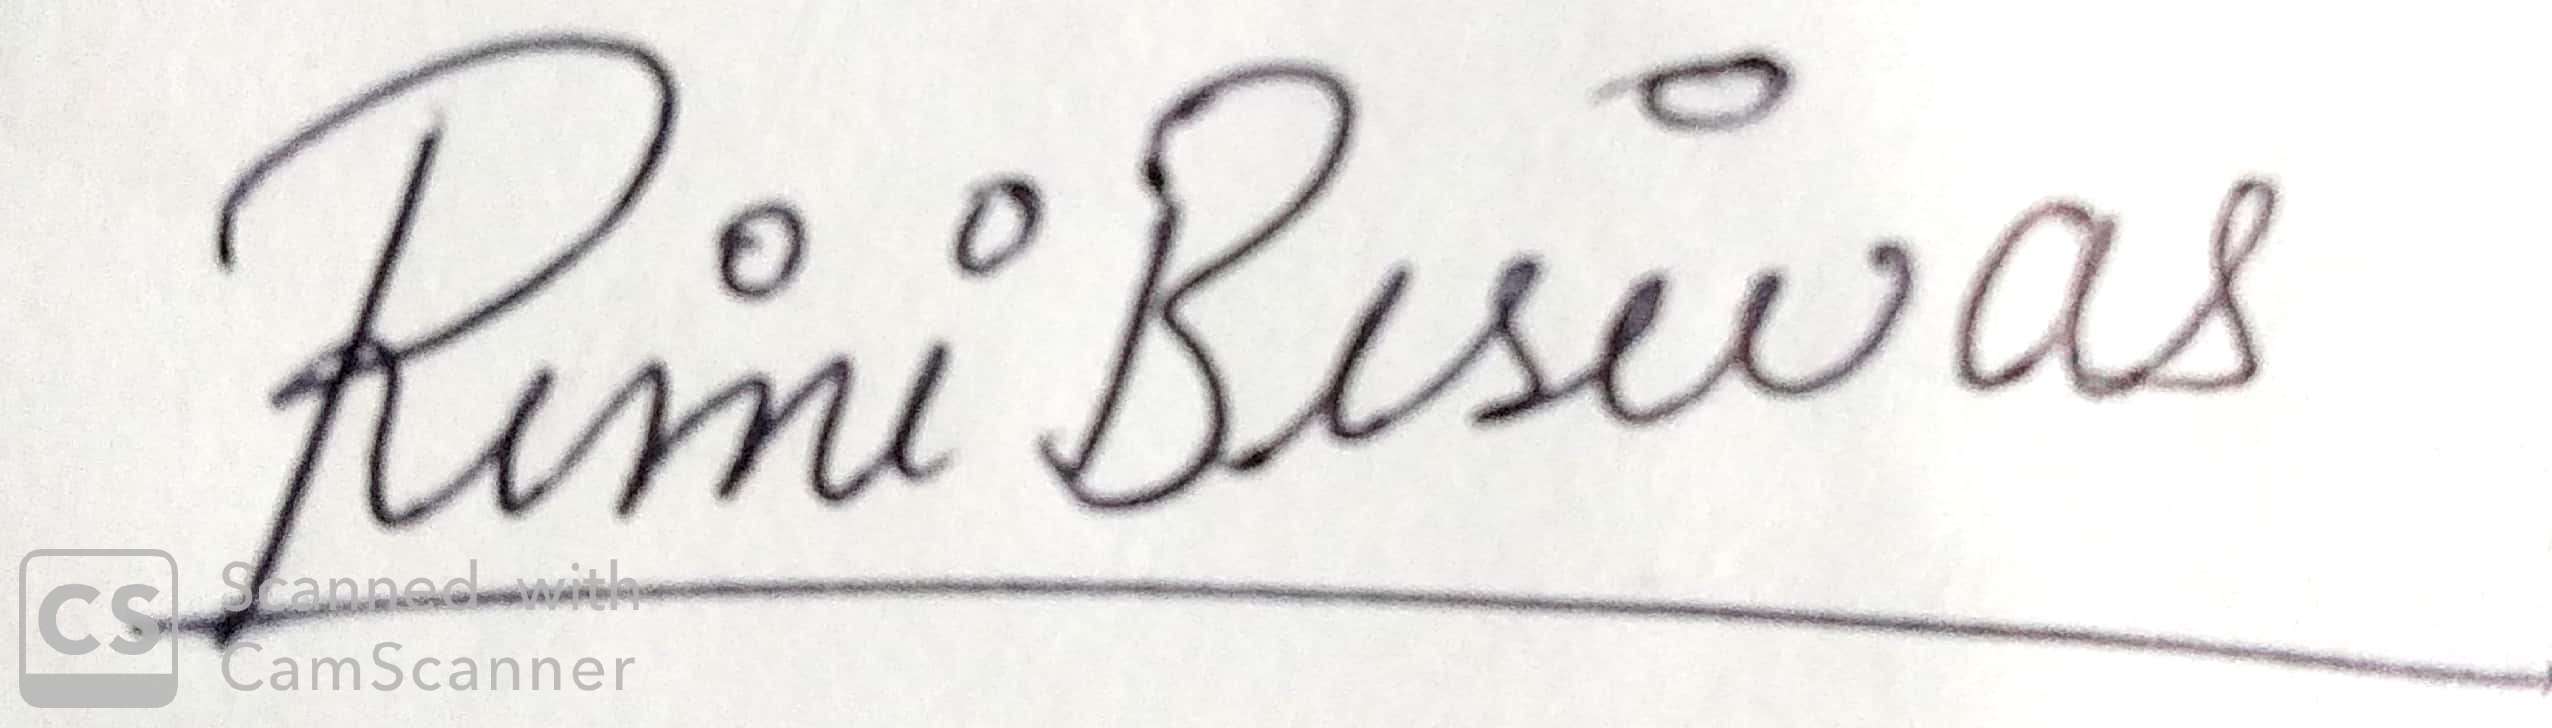 Rimi Biswas
CS Scanned with
CamScanner